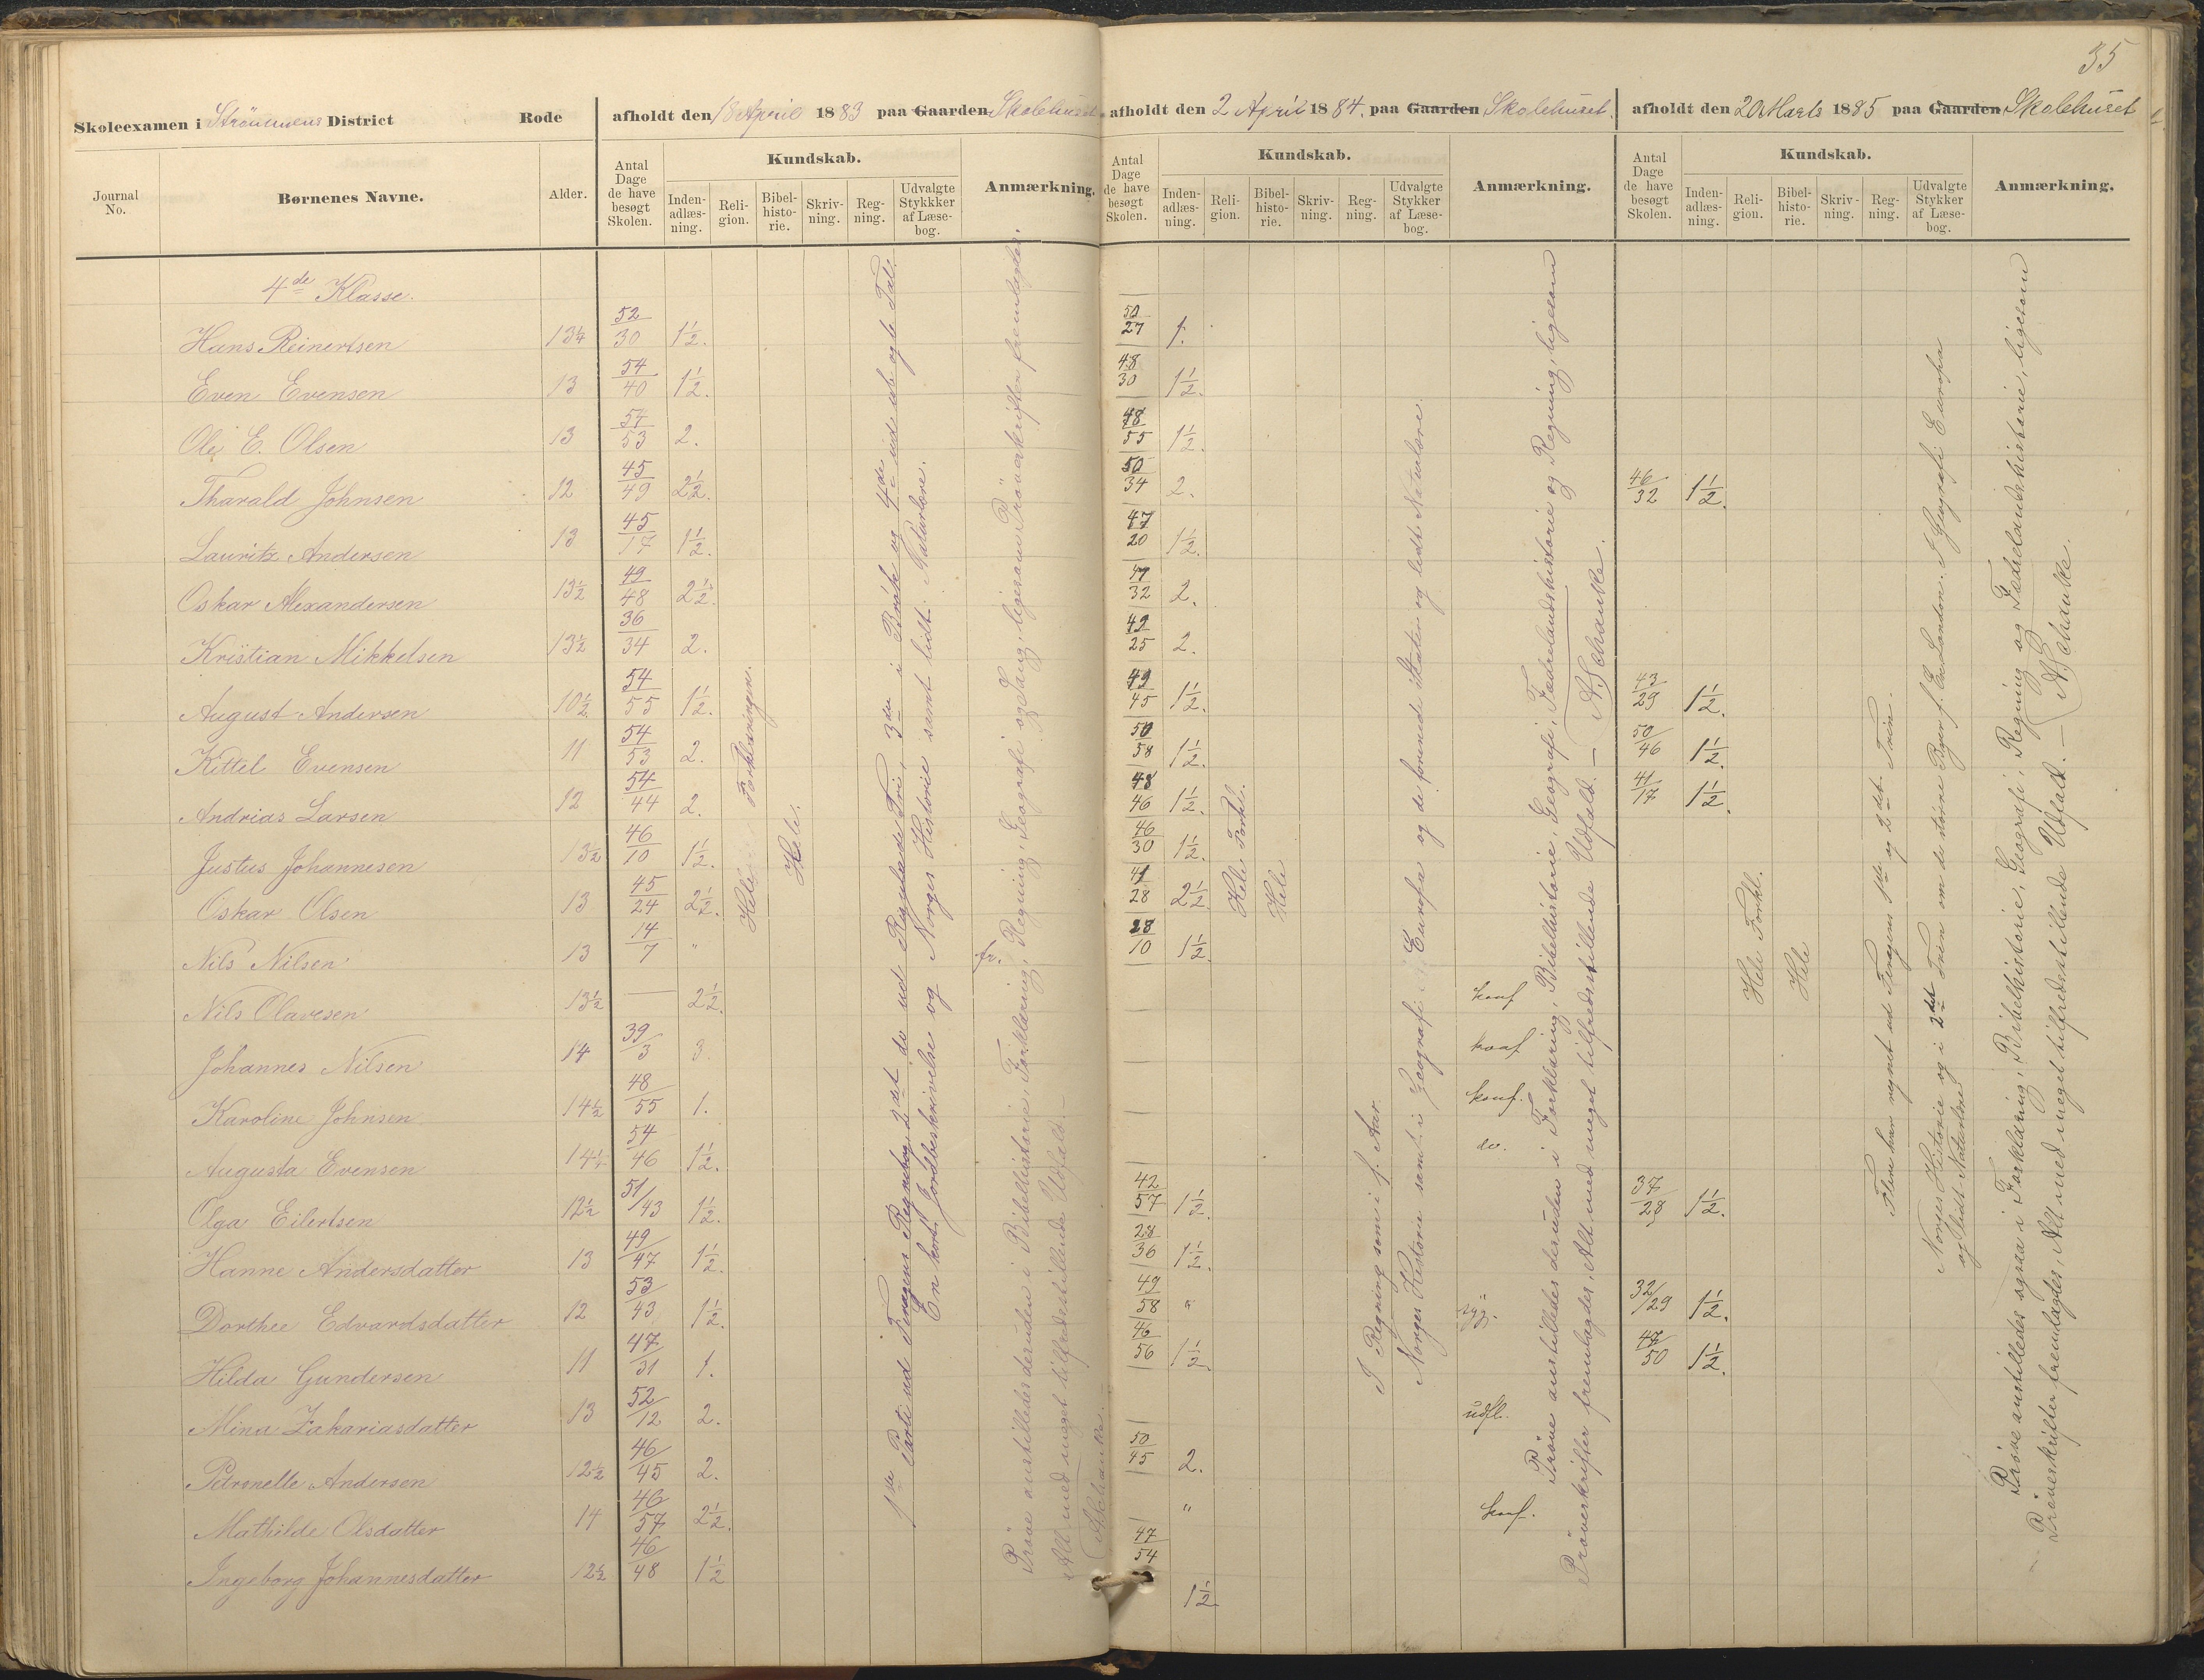 35
Skoleexamen i Strömmens District Rode afholdt den 18 April 1883 paa Gaarden Skolehuset afholdt den 2 April 1884. paa Gaarden Skolehuset. afholdt den 20 Marts 1885 paa Gaarden Skolehuset
Journal No. Børnenes Navne. Alder. Antal Dage de have besøgt Skolen. Kundskab. Inden-adlæs-ning. Reli-gion. Bibel-histo-rie. Skriv-ning. Reg-ning. Udvalgte Stykkker af Læse-bog. Anmærkning.
Antal Dage de have besøgt Skolen. Kundskab. Inden-adlæs-ning. Reli-gion. Bibel-histo-rie. Skriv-ning. Reg-ning. Udvalgte Stykker af Læse-bog. Anmærkning.
Antal Dage de have besøgt Skolen. Kundskab. Inden-adlæs-ning. Reli-gion. Bibel-histo-rie. Skriv-ning. Reg-ning. Udvalgte Stykker af Læse-bog. Anmærkning.
4de Klasse.
Hans Reinertsen 13¼ 52/30 1½. 50/27 1.
Even Evensen 13 54/40 1½. 48/30 1½.
Ole E. Olsen 13 57/53 2. 48/55 1½.
Tharald Johnsen 12 45/49 2½. 50/34 2. 46/32 1½.
Lauritz Andersen 13 45/17 1½. 47/20 1½.
Oskar Alexandersen 13½ 49/48 2½. 47/32 2.
Kristian Mikkelsen 13½ 36/34 2. 49/25 2.
August Andersen 10½ 54/55 1½. 49/45 1½. 43/29 1½.
Kittil Evensen 11 54/53 2. 50/58 1½. 50/46 1½.
Andrias Larsen 12 54/44 2. 48/46 1½. 41/17 1½.
Justus Johannesen 13½ 46/10 1½. 46/30 1½.
Oskar Olsen 13 45/24 2½. 41/28 2½.
Nils Nilsen 13 14/7 " fr. 28/10 1½
Nils Olavesen 13½ — 2½. konf
Johannes Nilsen 14 39/3 3. konf
Karoline Johnsen 14½ 48/55 1. konf.
Augusta Evensen 14¼ 54/46 1½. do.
Olga Eilertsen 12½ 51/43 1½. 42/57 1½. 37/28 1½.
Hanne Andersdatter 13 49/47 1½. 28/36 1½.
Dorthee Edvardsdatter 12 53/43 1½. 49/58 " syg. 32/29 1½.
Hilda Gundersen 11 47/31 1. 46/56 1½. 47/50 1½.
Mina Zakariasdatter 13 52/12 2. udfl.
Petronelle Andersen 12½ 46/45 2. 50/45 2.
Mathilde Olsdatter 14 46/57 2½. " konf.
Ingeborg Johannesdatter 12½ 46/48 1½ 47/54 1½
Hele Forklaringen.
Hele.
1ste Parti ud Fenegers Regnebog, 2det do ud Regulade Tri, 3die i Brøk og 4de ud ube og le Tal.
En kort Jordbeskrivelse og Norges Historie samt lidt Naturlære.
Prøve anstilledes desuden i Bibelhistorie, Forklaring, Regning, Geografi og Sang, ligesom Prøveskrifter fremlagdes.
Alt med meget tilfredsstillende Udfald. —
A. Schanke.
Hele Forkl.
Hele
I Regning som i f. Aar.
Norges Historie samt i Geografi Europa og de forenede Stater og lidt Naturlære.
Prøve anstilledes desuden i Forklaring, Bibelhistorie, Geografi, Fædrelandshistorie og Regning, ligesom
Prøveskrifter fremlagdes, Alt med meget tilfredsstillende Udfald. —
A. Schanke.
Hele Forkl.
Hele
Flere har regnet ud Fenegers 1ste og 2det Trin.
Norges Historie og i 2det Trin om de större Byer f. Ex London. I Geografi Europa
og lidt Naturlære
Prøve anstilledes ogsaa i Forklaring, Bibelhistorie, Geografi, Regning og Fædrelandshistorie, ligesom
Prøveskrifter fremlagdes, Alt med meget tilfredsstillende Udfald. —
A. Schanke.